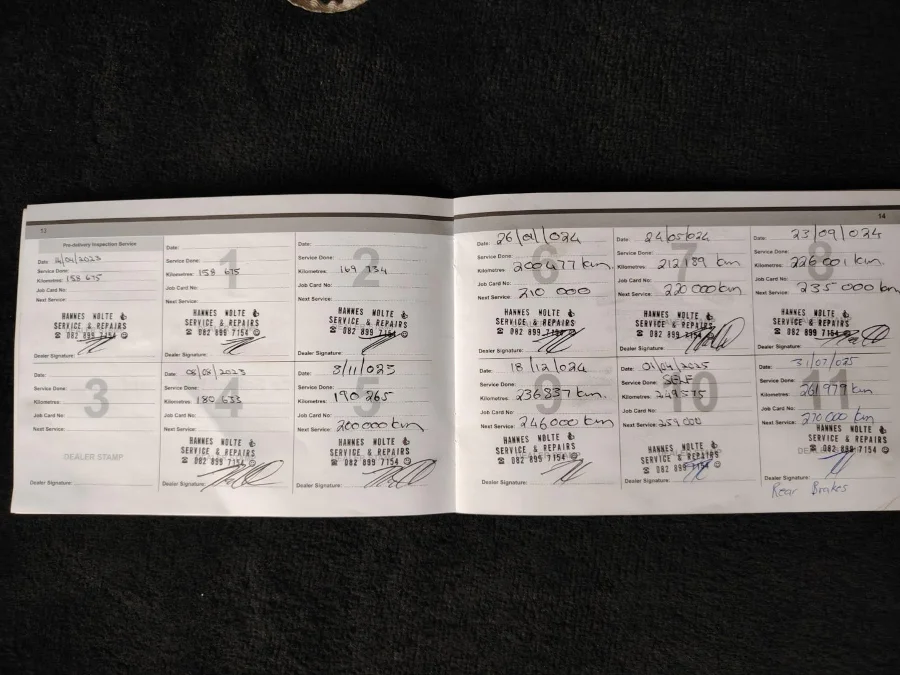 13
Pre-delivery Inspection Service
Date: 14/04/2023
Service Done:
Kilometres: 158 675
Job Card No:
Next Service:
HANNES NOLTE
SERVICE & REPAIRS
☎ 082 899 7154
Dealer Signature:
1
Date:
Service Done:
Kilometres: 158 675
Job Card No:
Next Service:
HANNES NOLTE
SERVICE & REPAIRS
☎ 082 899 7154
Dealer Signature:
2
Date:
Service Done:
Kilometres: 169 734
Job Card No:
Next Service:
HANNES NOLTE
SERVICE & REPAIRS
☎ 082 899 7154
Dealer Signature:
3
Date:
Service Done:
Kilometres:
Job Card No:
Next Service:
DEALER STAMP
Dealer Signature:
4
Date: 08/08/2023
Service Done:
Kilometres: 180 633
Job Card No:
Next Service:
HANNES NOLTE
SERVICE & REPAIRS
☎ 082 899 7154
Dealer Signature:
5
Date: 3/11/023
Service Done:
Kilometres: 190 265
Job Card No:
Next Service: 200000 km
HANNES NOLTE
SERVICE & REPAIRS
☎ 082 899 7154
Dealer Signature:
14
6
Date: 26/01/024
Service Done:
Kilometres: 200477 km
Job Card No:
Next Service: 210 000
HANNES NOLTE
SERVICE & REPAIRS
☎ 082 899 7154
Dealer Signature:
7
Date: 24/05/024
Service Done:
Kilometres: 212189 km
Job Card No:
Next Service: 220 000 km
HANNES NOLTE
SERVICE & REPAIRS
☎ 082 899 7154
Dealer Signature:
8
Date: 23/09/024
Service Done:
Kilometres: 226 001 km.
Job Card No:
Next Service: 235 000 km
HANNES NOLTE
SERVICE & REPAIRS
☎ 082 899 7154
Dealer Signature:
9
Date: 18/12/024
Service Done:
Kilometres: 236837 km.
Job Card No:
Next Service: 246000 km
HANNES NOLTE
SERVICE & REPAIRS
☎ 082 899 7154
Dealer Signature:
10
Date: 01/04/2025
Service Done: SELF
Kilometres: 249575
Job Card No:
Next Service: 259 000
HANNES NOLTE
SERVICE & REPAIRS
☎ 082 899 7154
Dealer Signature:
11
Date: 31/07/025
Service Done:
Kilometres: 261979 km.
Job Card No:
Next Service: 270 000 km
HANNES NOLTE
SERVICE & REPAIRS
☎ 082 899 7154
Dealer Signature:
Rear Brakes